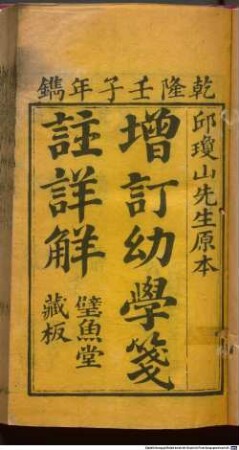 乾隆壬子年鐫
邱瓊山先生原本
增訂幼學箋
註詳解
璧魚堂
藏板